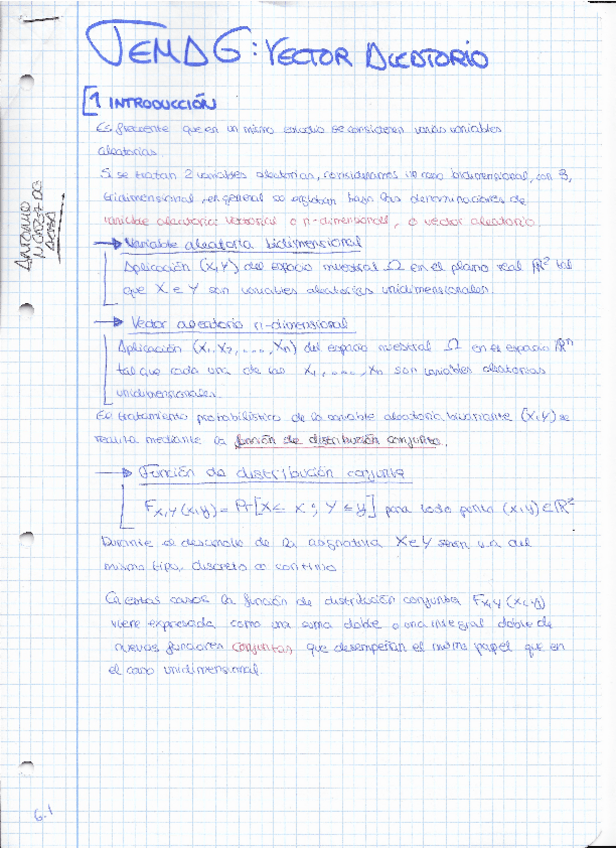 TEMA 6: VECTOR ALEATORIO
1 INTRODUCCIÓN
Es frecuente que en un mismo estudio se consideren varias variables
aleatorias.
Si se tratan 2 variables aleatorias, consideramos un caso bidimensional, con 3,
tridimensional, en general se engloban bajo las denominaciones de
variable aleatoria vectorial o n-dimensional, o vector aleatorio.
→ Variable aleatoria bidimensional
Aplicación (X,Y) del espacio muestral Ω en el plano real ℝ² tal
que X e Y son variables aleatorias unidimensionales.
→ Vector aleatorio n-dimensional
Aplicación (X₁, X₂, ...., Xn) del espacio muestral Ω en el espacio ℝⁿ
tal que cada una de las X₁, ...., Xn son variables aleatorias
unidimensionales.
El tratamiento probabilístico de la variable aleatoria bivariante (X,Y) se
realiza mediante la función de distribución conjunta.
→ Función de distribución conjunta
F_X,Y (x,y) = Pr[X ≤ x ; Y ≤ y] para todo punto (x,y) ∈ ℝ²
Durante el desarrollo de la asignatura X e Y serán v.a. del
mismo tipo, discreto o continuo.
En estos casos la función de distribución conjunta F_X,Y (x,y)
viene expresada como una suma doble o una integral doble de
nuevas funciones conjuntas que desempeñan el mismo papel que en
el caso unidimensional.
ANTONIO
6.1